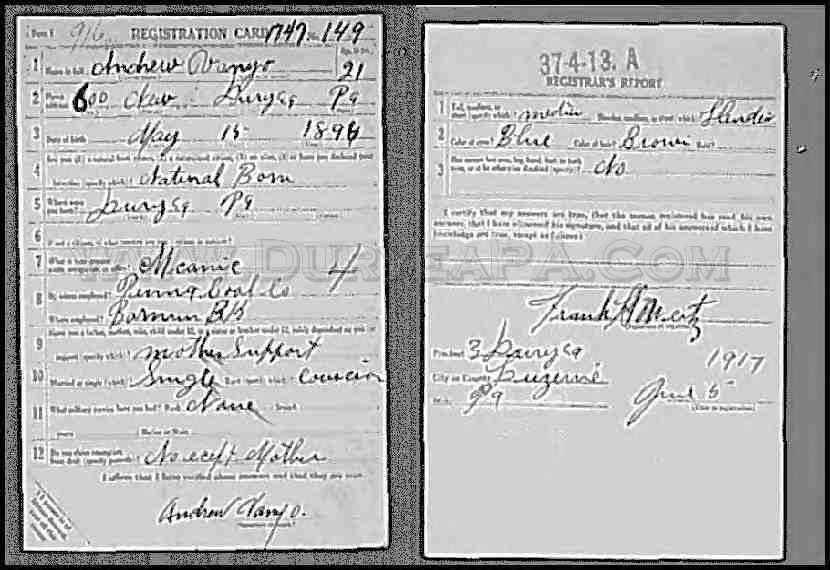 Form 1 916 REGISTRATION CARD 1747 No. 149
1 Name in full Andrew Vanyo 21
2 600 Duryea Pa
3 Date of birth May 15 1896
Are you (1) a natural-born citizen, (2) a naturalized citizen, (3) an alien, (4) or have you declared your
4 intention (specify which)? Natural Born
5 Where were you born? Duryea Pa
6 If not a citizen, of what country are you a citizen or subject?
7 What is your present trade, occupation, or office? Mcanic 4
8 By whom employed? Penna Coal Co
Where employed? Barnum
Have you a father, mother, wife, child under 12, or a sister or brother under 12, solely dependent on you for
9 support (specify which)? mother Support
10 Married or single (which)? Single Race (specify which)?
11 What military service have you had? Rank None branch
years Nation or State
12 Do you claim exemption from draft (specify grounds)? Mother
I affirm that I have verified above answers and that they are true.
Andrew Vanyo.
37-4-13. A
REGISTRAR'S REPORT
1 Tall, medium, or short (specify which)? Slender, medium, or stout (which)? Slender
2 Color of eyes? Blue Color of hair? Brown Bald?
3 Has person lost arm, leg, hand, foot, or both eyes, or is he otherwise disabled (specify)? No
I certify that my answers are true, that the person registered has read his own
answers, that I have witnessed his signature, and that all of his answers of which I have
knowledge are true, except as follows:
WWW.DURYEAPA.COM
Frank
Precinct 3 Duryea
City or County Luzerne 1917
Pa June 5
(Date of registration)